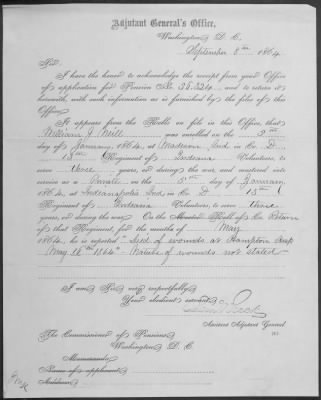 Adjutant General's Office,
Washington, D. C.
September 8th 1864.
Sir:
I have the honor to acknowledge the receipt from your Office
of application for Pension No. 38.324 and to return it
herewith, with such information as is furnished by the files of this
Office.
It appears from the Rolls on file in this Office, that
William J. was enrolled on the
day of January, 1864, at Madison Ind. in Co. D
13th Regiment of Indiana Volunteers, to
serve three years, or during the war, and mustered into
service as a Private on the day of January
1864, at Indianapolis Ind in Co. D 13th
Regiment of Indiana Volunteers, to serve three
years, or during the war. On the Muster Roll of Co. Return
of that Regiment, for the month of May
1864, he is reported "Died of wounds at Hampton
May 16th 1864." Nature of wounds not stated
I am Sir very respectfully
Your obedient servant,
Assistant Adjutant General
The Commissioner of Pensions
Washington D. C.
Memoranda
Name of applicant
Address